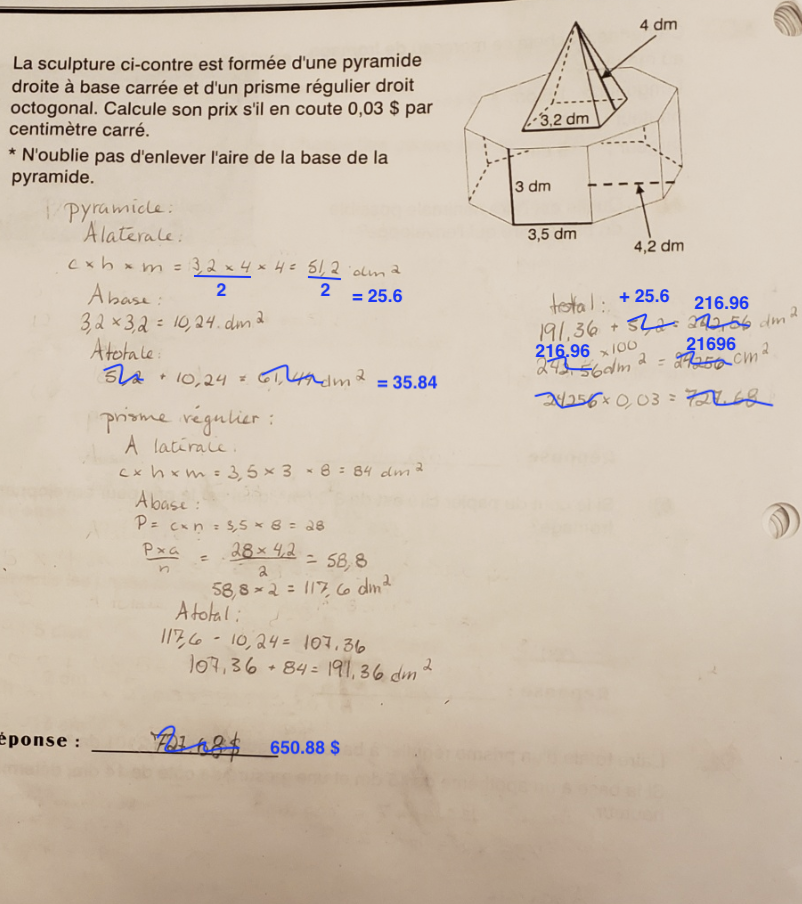 La sculpture ci-contre est formée d'une pyramide
droite à base carrée et d'un prisme régulier droit
octogonal. Calcule son prix s'il en coute 0,03 $ par
centimètre carré.
* N'oublie pas d'enlever l'aire de la base de la
pyramide.
4 dm
3,2 dm
3 dm
3,5 dm
4,2 dm
pyramide:
A latérale:
c × n × m = 3,2 × 4 × 4 = 51,2 dm²
2 2 = 25.6
A base:
3,2 × 3,2 = 10,24 dm²
A totale:
51,2 + 10,24 = 61,44 dm² = 35.84
prisme régulier:
A latérale.
c × h × m = 3,5 × 3 × 8 = 84 dm²
A base:
P = c × n = 3,5 × 8 = 28
P × a / n = 28 × 4,2 / 2 = 58,8
58,8 × 2 = 117,6 dm²
A total:
117,6 - 10,24 = 107,36
107,36 + 84 = 191,36 dm²
total: + 25.6 216.96
191,36 + 51,2 = 242,56 dm²
216.96 ×100 21696
242,56 dm² = 24256 cm²
24256 × 0,03 = 727,68
éponse : 727,68 $ 650.88 $